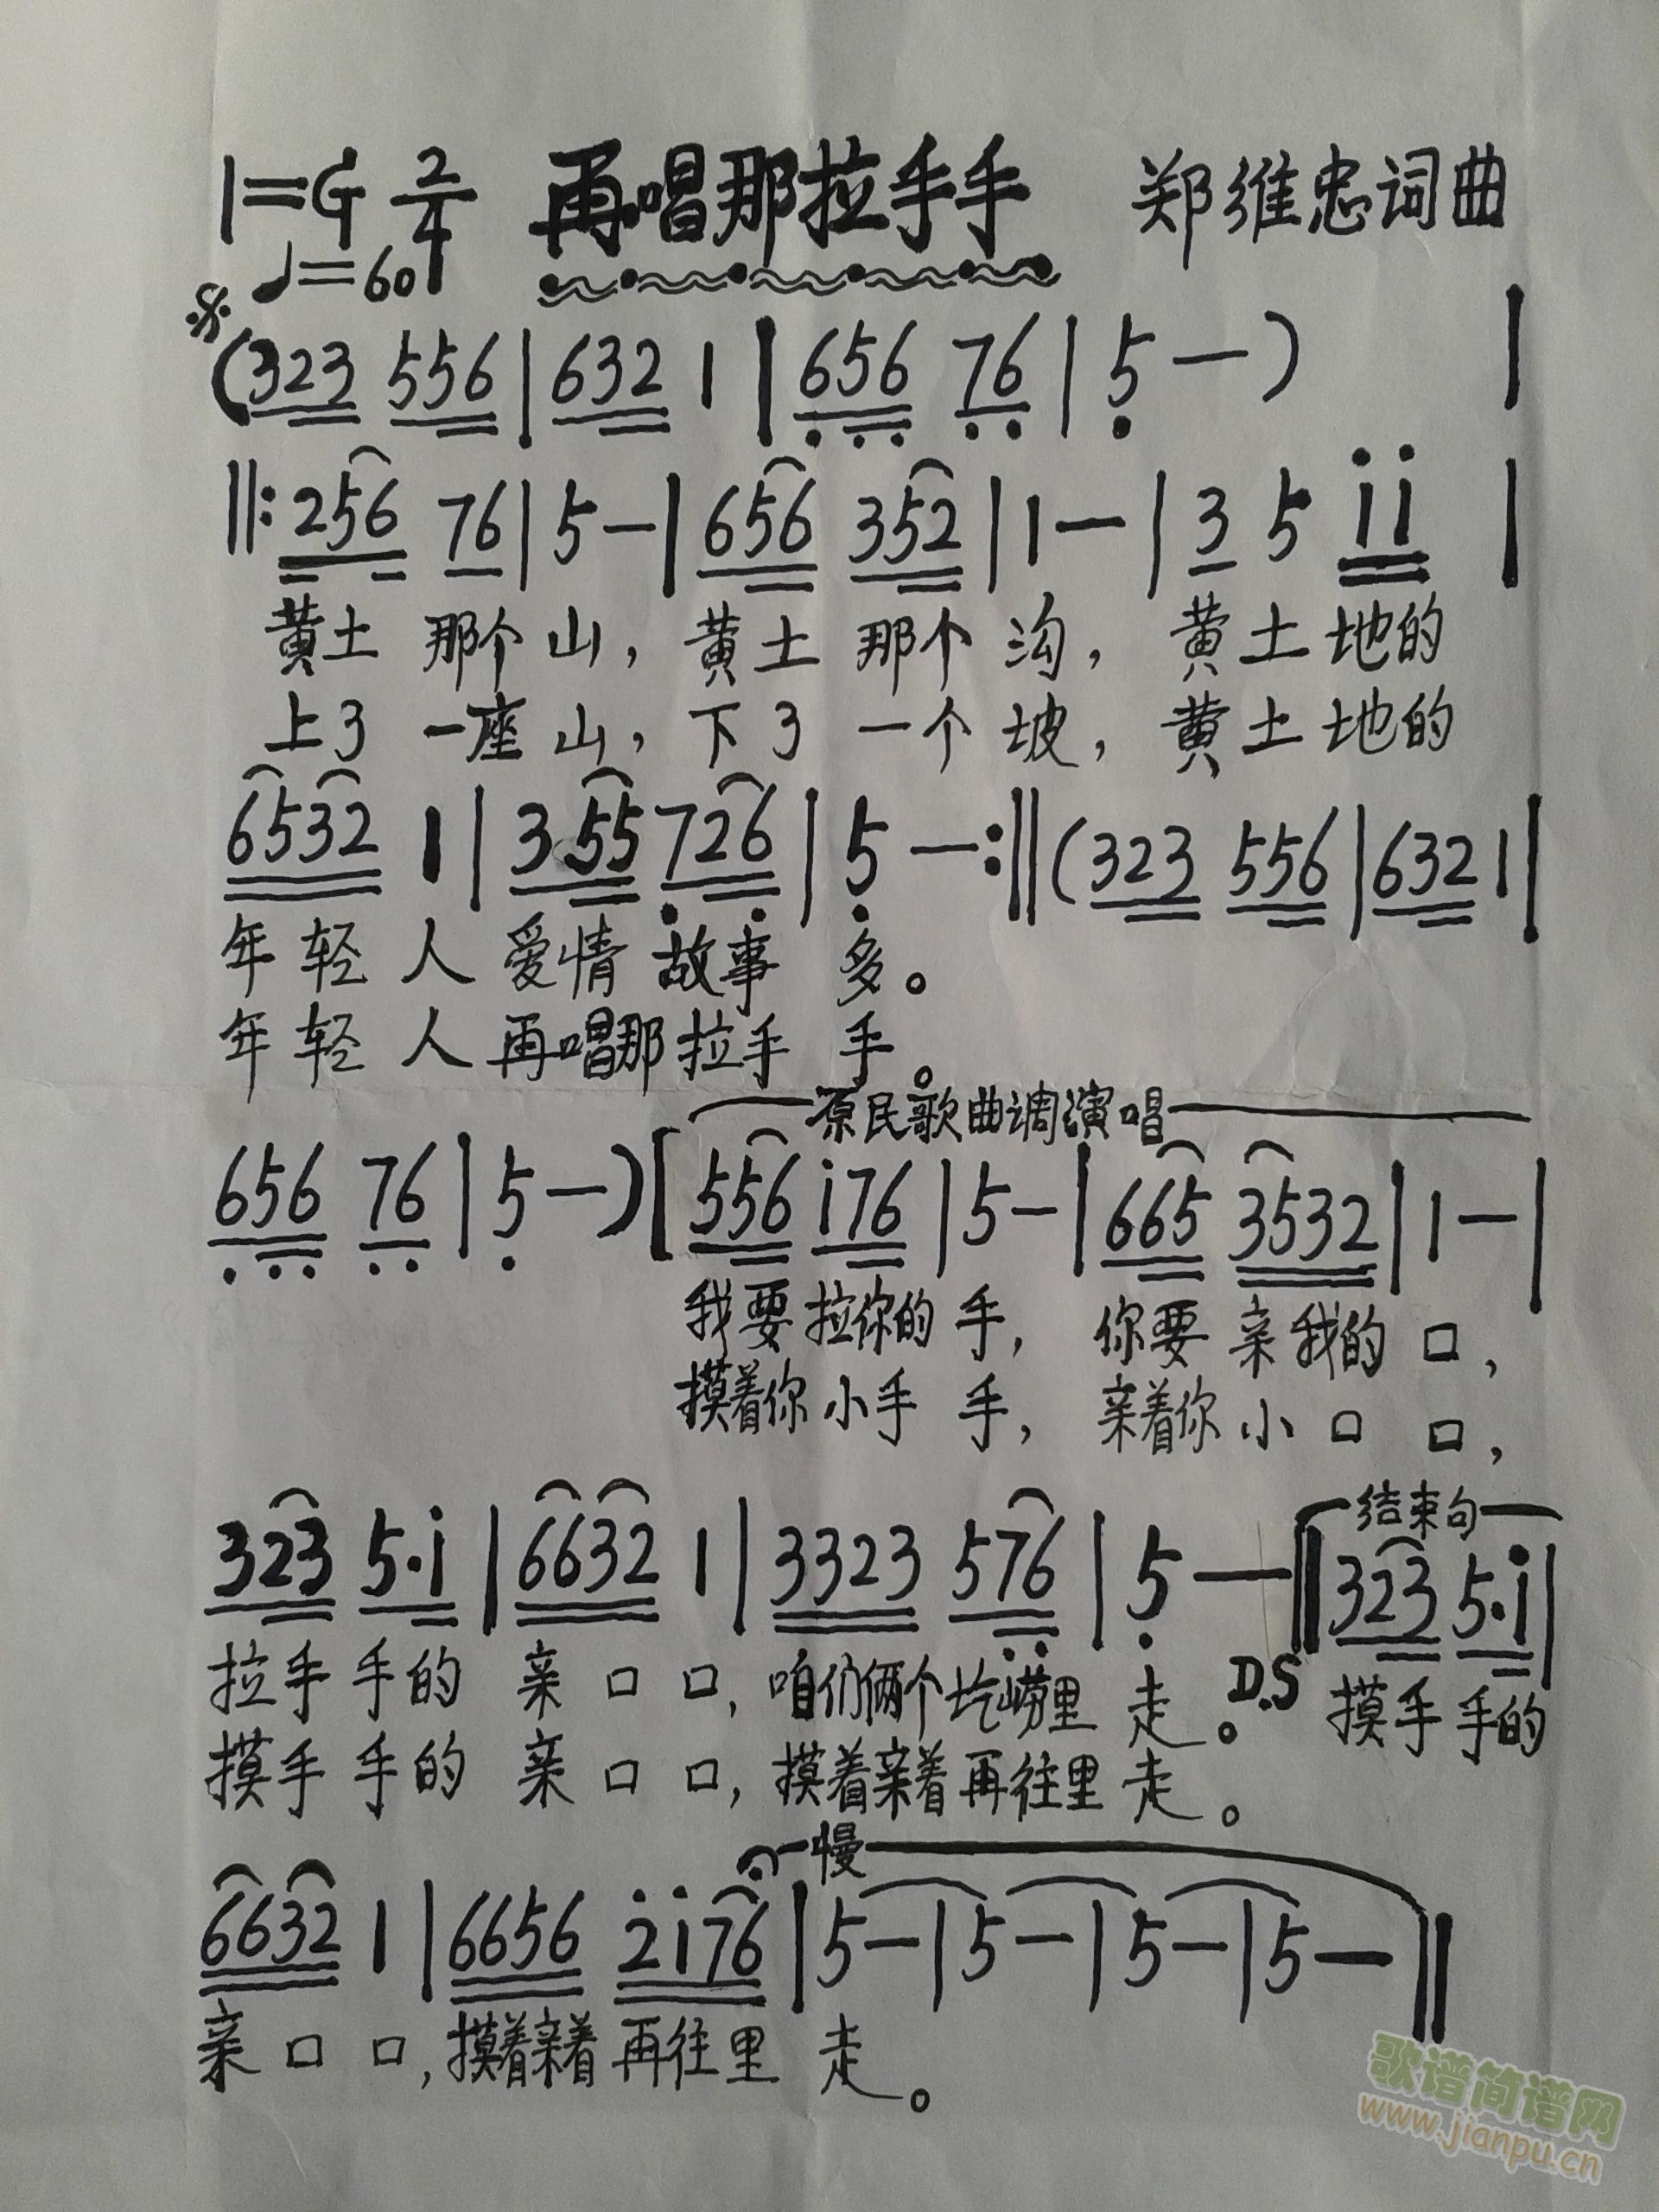 1=G 2/4 再唱那拉手手 郑维忠词曲
♩=60
(323 556|632 1|656 76|5 —) |
‖:256 76|5—|656 352|1—|3 5 i i |
黄土 那个 山，黄土 那个 沟，黄土地的
上了 一座 山，下了 一个 坡，黄土地的
6532 1|3 55 726|5 —:‖(323 556|632 1|
年轻人 爱情 故事 多。
年轻人 再唱那拉手 手。
原民歌曲调演唱
656 76|5—)[556 i76|5—|665 3532|1—|
我要拉你的 手，你要 亲我的 口，
摸着你 小手 手，亲着你 小口 口，
结束句
323 5·i|6632 1|3323 576|5 —‖323 5·i|
拉手手的 亲口口，咱们俩个圪崂里 走。D.S 摸手手的
摸手手的 亲口口，摸着亲着再往里 走。
慢
6632 1|6656 2i76|5—|5—|5—|5—‖
亲口口，摸着亲着 再往里 走。
歌谱简谱网
www.jianpu.cn